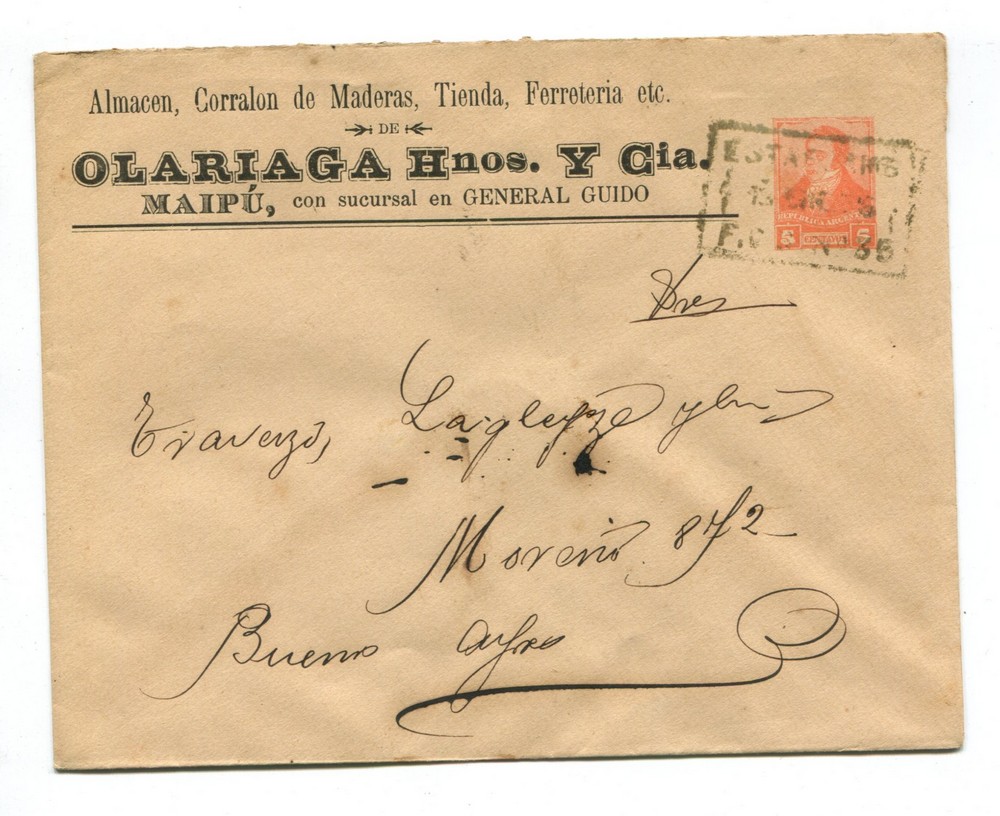 Almacen, Corralon de Maderas, Tienda, Ferreteria etc.
DE
OLARIAGA Hnos. Y Cia.
MAIPÚ, con sucursal en GENERAL GUIDO
ESTAF AMB
REPUBLICA ARGENTINA
5 CENTAVOS 5
F.C. 35
Sres
Traverso, Lagleyze y
Moreno 872
Buenos Ayres